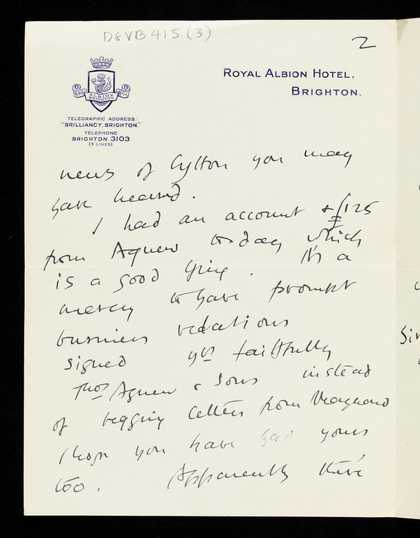 D&VB 415 (3)
2
ROYAL ALBION HOTEL,
BRIGHTON.
TELEGRAPHIC ADDRESS:
"BRILLIANCY, BRIGHTON"
TELEPHONE
BRIGHTON 3103
(5 LINES)
news of Lytton you may
have heard.
I had an account & £125
from Agnew today which
is a good thing. It's a
mercy to have prompt
business relations
signed yrs faithfully
Thos Agnew & Sons instead
of begging letters from Maynard
I hope you have had yours
too. Apparently they've